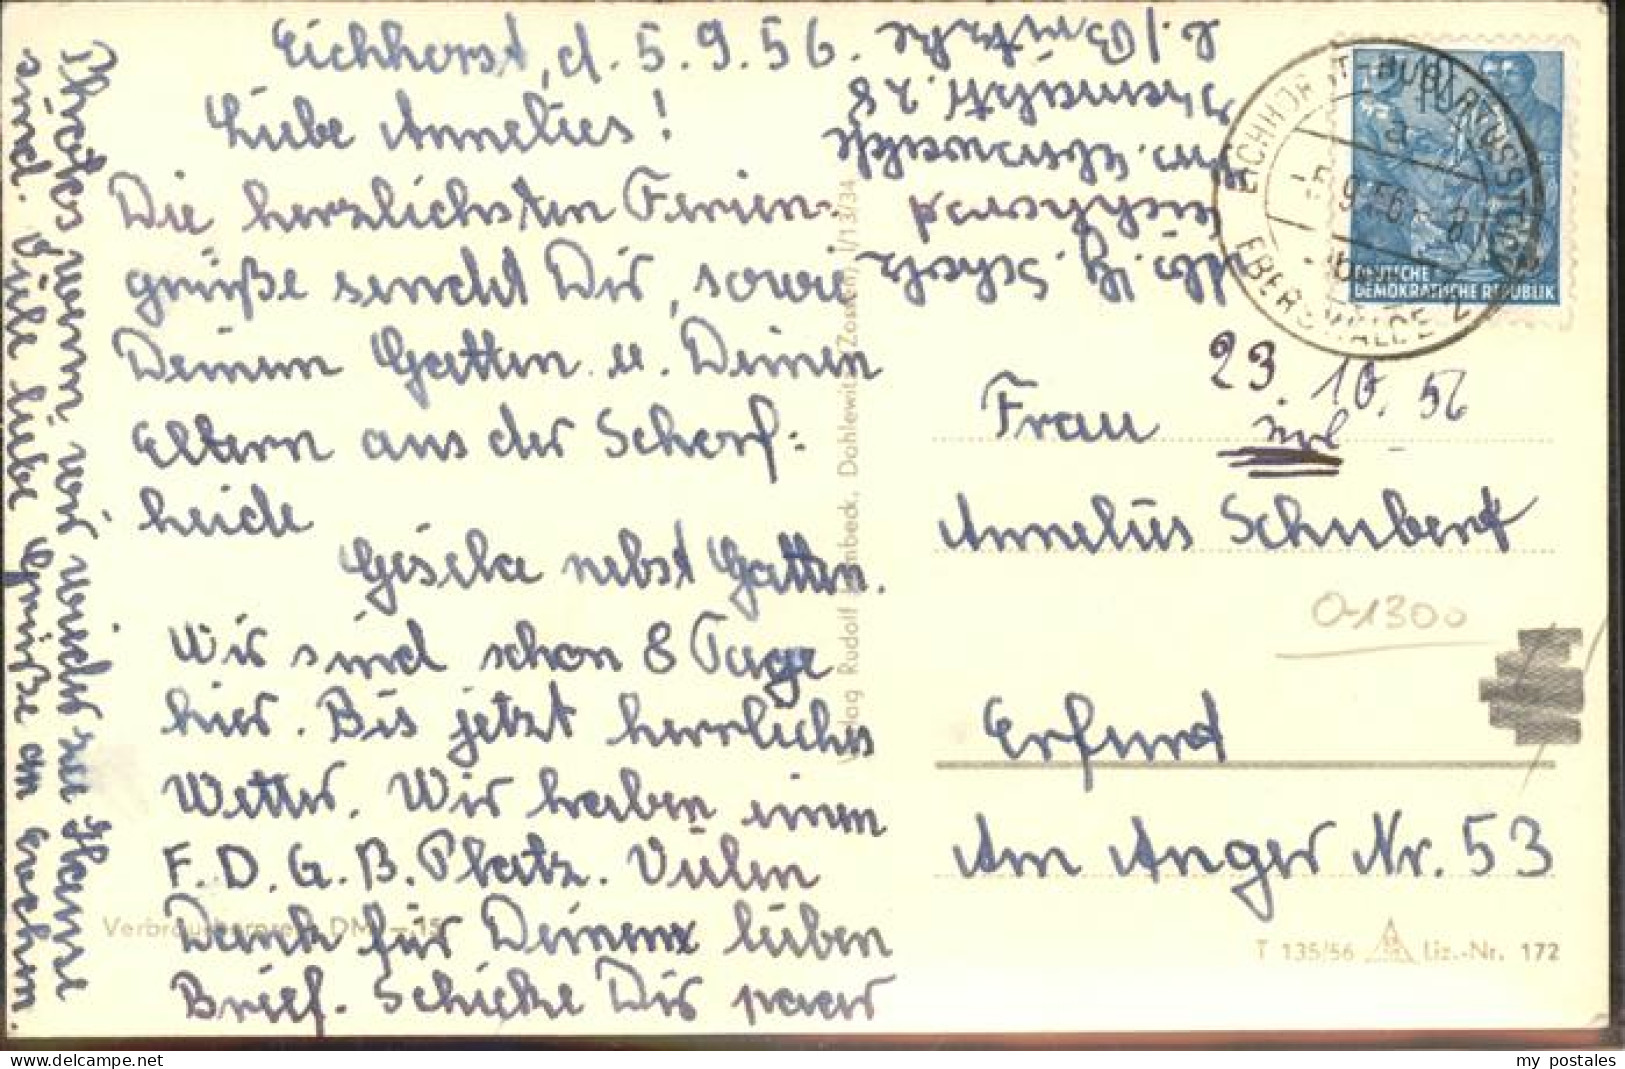 Eichhorst, d. 5.9.56.
Liebe Annelies!
Die herzlichsten Ferien-
grüße sendet Dir, sowie
Deinem Gatten u. Deinen
Eltern aus der Schorf-
heide
Gisela nebst Gatten.
Wir sind schon 8 Tage
hier. Bis jetzt herrliches
Wetter. Wir haben einen
F.D.G.B. Platz. Vielen
Dank für Deinen lieben
Brief. Schicke Dir paar
Photos wenn wir wieder zu Hause
sind. Viele liebe Grüße an
Abs. G. Scholz
Eichhorst
28
EICHHORST
EBERSWALDE 2
-5.9.56.-8
a
DEUTSCHE
DEMOKRATISCHE REPUBLIK
23.10.56
Frau
Annelies Schubert
0-1300
Erfurt
Am Anger Nr. 53
Verlag Rudolf Lambeck, Dahlewitz (Zossen) I/13/34
Verbraucherpreis DM -.15
T 135/56 Liz.-Nr. 172
my postales